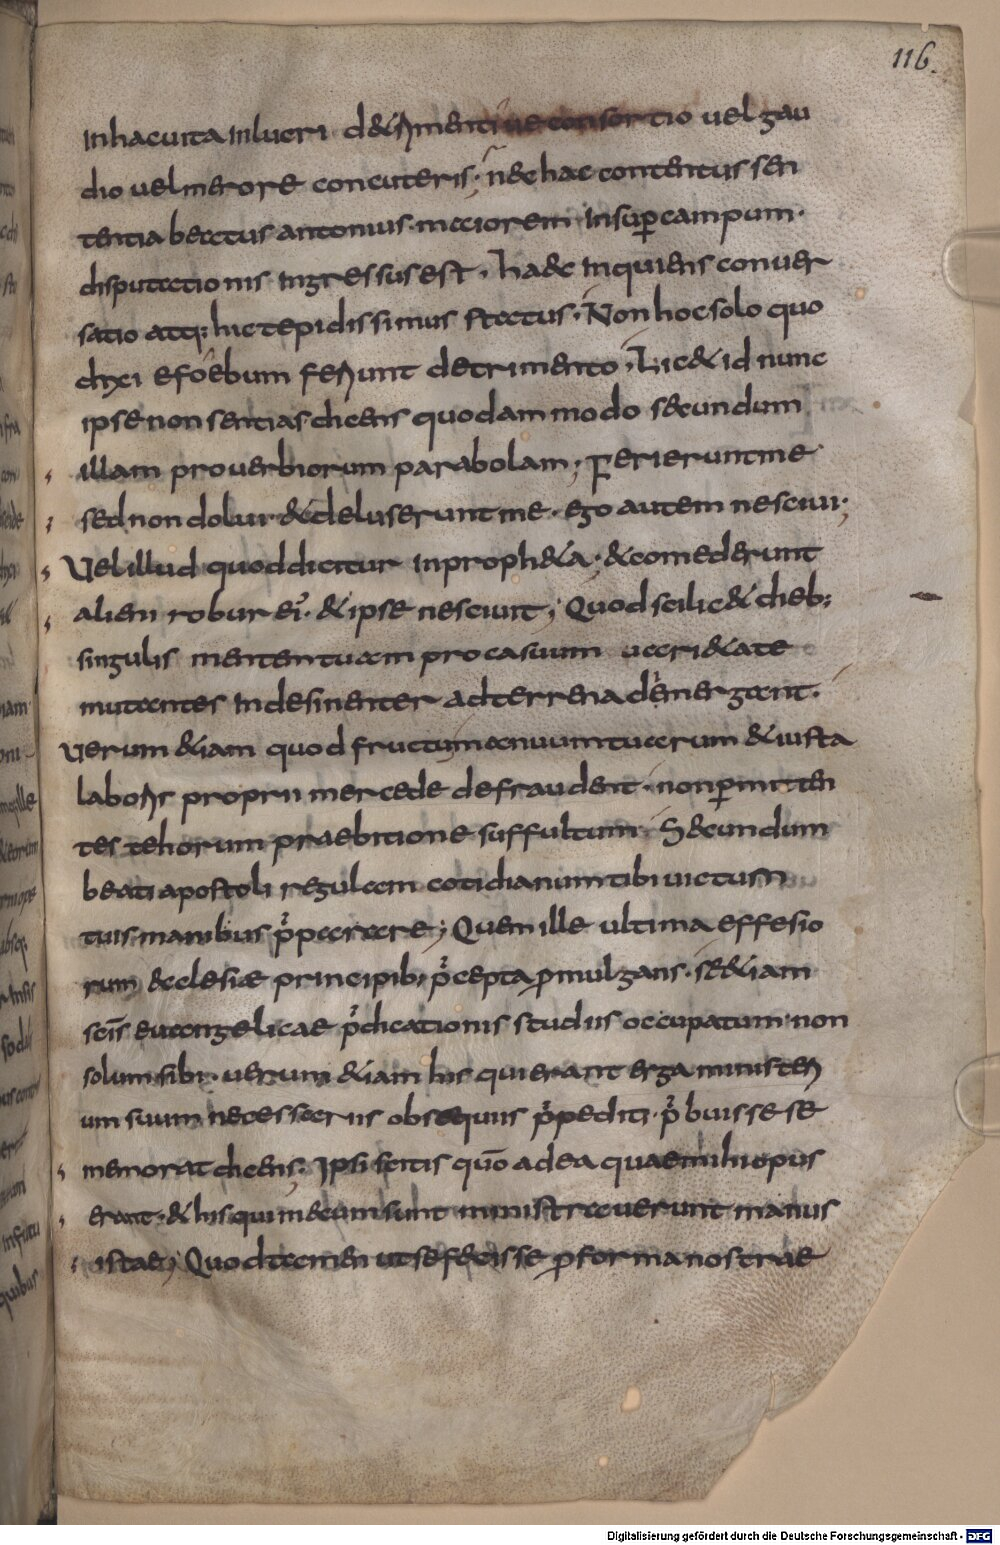 116.
in hac uita in lucri detrimentiue consortio uel gau
dio uel merore concuteris; nec hac contentus sen
tentia beatus antonius. maiorem insuper campum.
disputationis ingressus est. haec inquiens conuer
satio atq; hic tepidissimus status. Non hoc solo quo
diximus ferunt detrimento. Licet id nunc
ipse non sentias dicens quodam modo secundum
illam prouerbiorum parabolam; Perierunt me
sed non dolui & deluserunt me. ego autem nesciui;
Uel illud quod dicitur in propheta. & comederunt
alieni robur ei'. & ipse nesciuit; Quod scilic& dieb;
singulis mentem tuam pro casuum uari&ate
mutantes indesinenter ad terrena demergant.
uerum &iam quod fructu manuum tuarum & iusta
laboris proprii mercede defraudent. non p̱mitten
tes te horum praebitione suffultum. Secundum
beati apostoli regulam cotidianum tibi uictum
tuis manibus p̄parare; Quem ille ultima effesio
rum æclesiæ principib; p̄cepta ꝓmulgans. s& &iam
scīs euangelicae p̄dicationis studiis occupatum non
solum sibi. uerum &iam his qui erant erga ministeri
um suum necessariis obsequiis p̄pediti. p̄buisse se
memorat dicens; Ipsi scitis quō ad ea quae mihi opus
erant. & his qui mecum sunt ministrauerunt manus
istae; Quod tamen ut se fecisse ꝓ forma nostrae
Digitalisierung gefördert durch die Deutsche Forschungsgemeinschaft - DFG